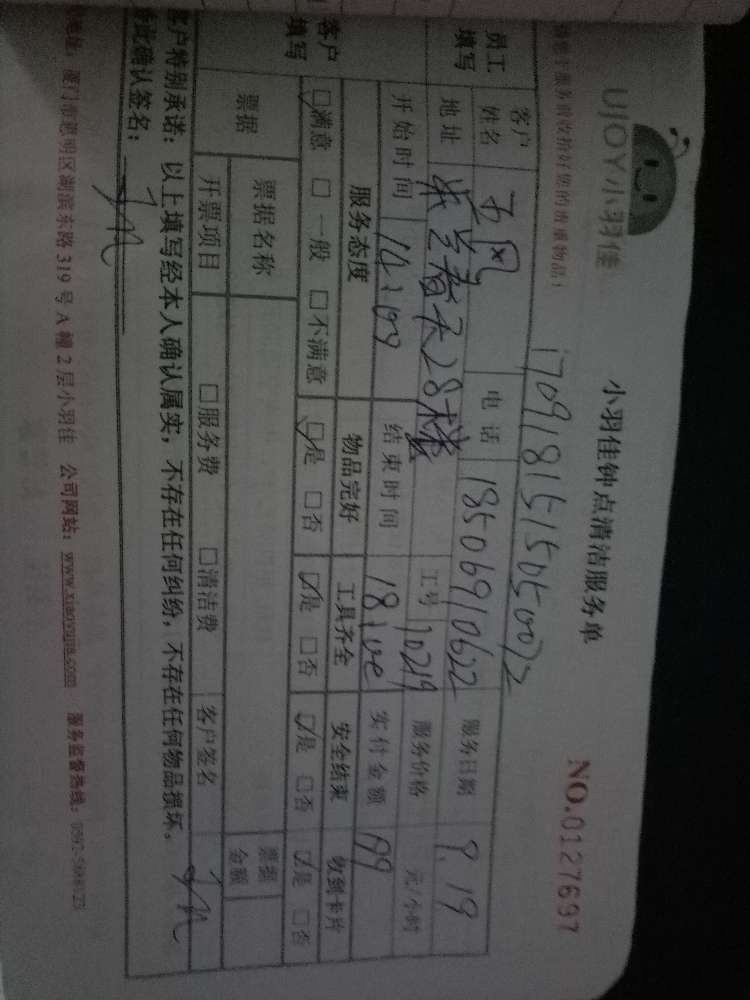 UJOY小羽佳
小羽佳钟点清洁服务单
NO.0127697
1709181515050072
员工填写
客户姓名
电话 18506910622
服务日期 9.19
地址
28楼
工号 10219
服务价格 元/小时
开始时间 14:00
结束时间 18:00
实付金额
客户填写
服务态度 物品完好 工具齐全 安全结束 收到卡片
☑满意 □一般 □不满意 ☑是 □否 ☑是 □否 ☑是 □否 ☑是 □否
票据
票据名称
票据金额
开票项目 □服务费 □清洁费 客户签名
客户特别承诺：以上填写经本人确认属实，不存在任何纠纷，不存在任何物品损坏。
特此确认签名：
地址：厦门市思明区湖滨东路 319 号 A 幢 2 层小羽佳 公司网站：www.xiaoyujia.com 服务监督热线：